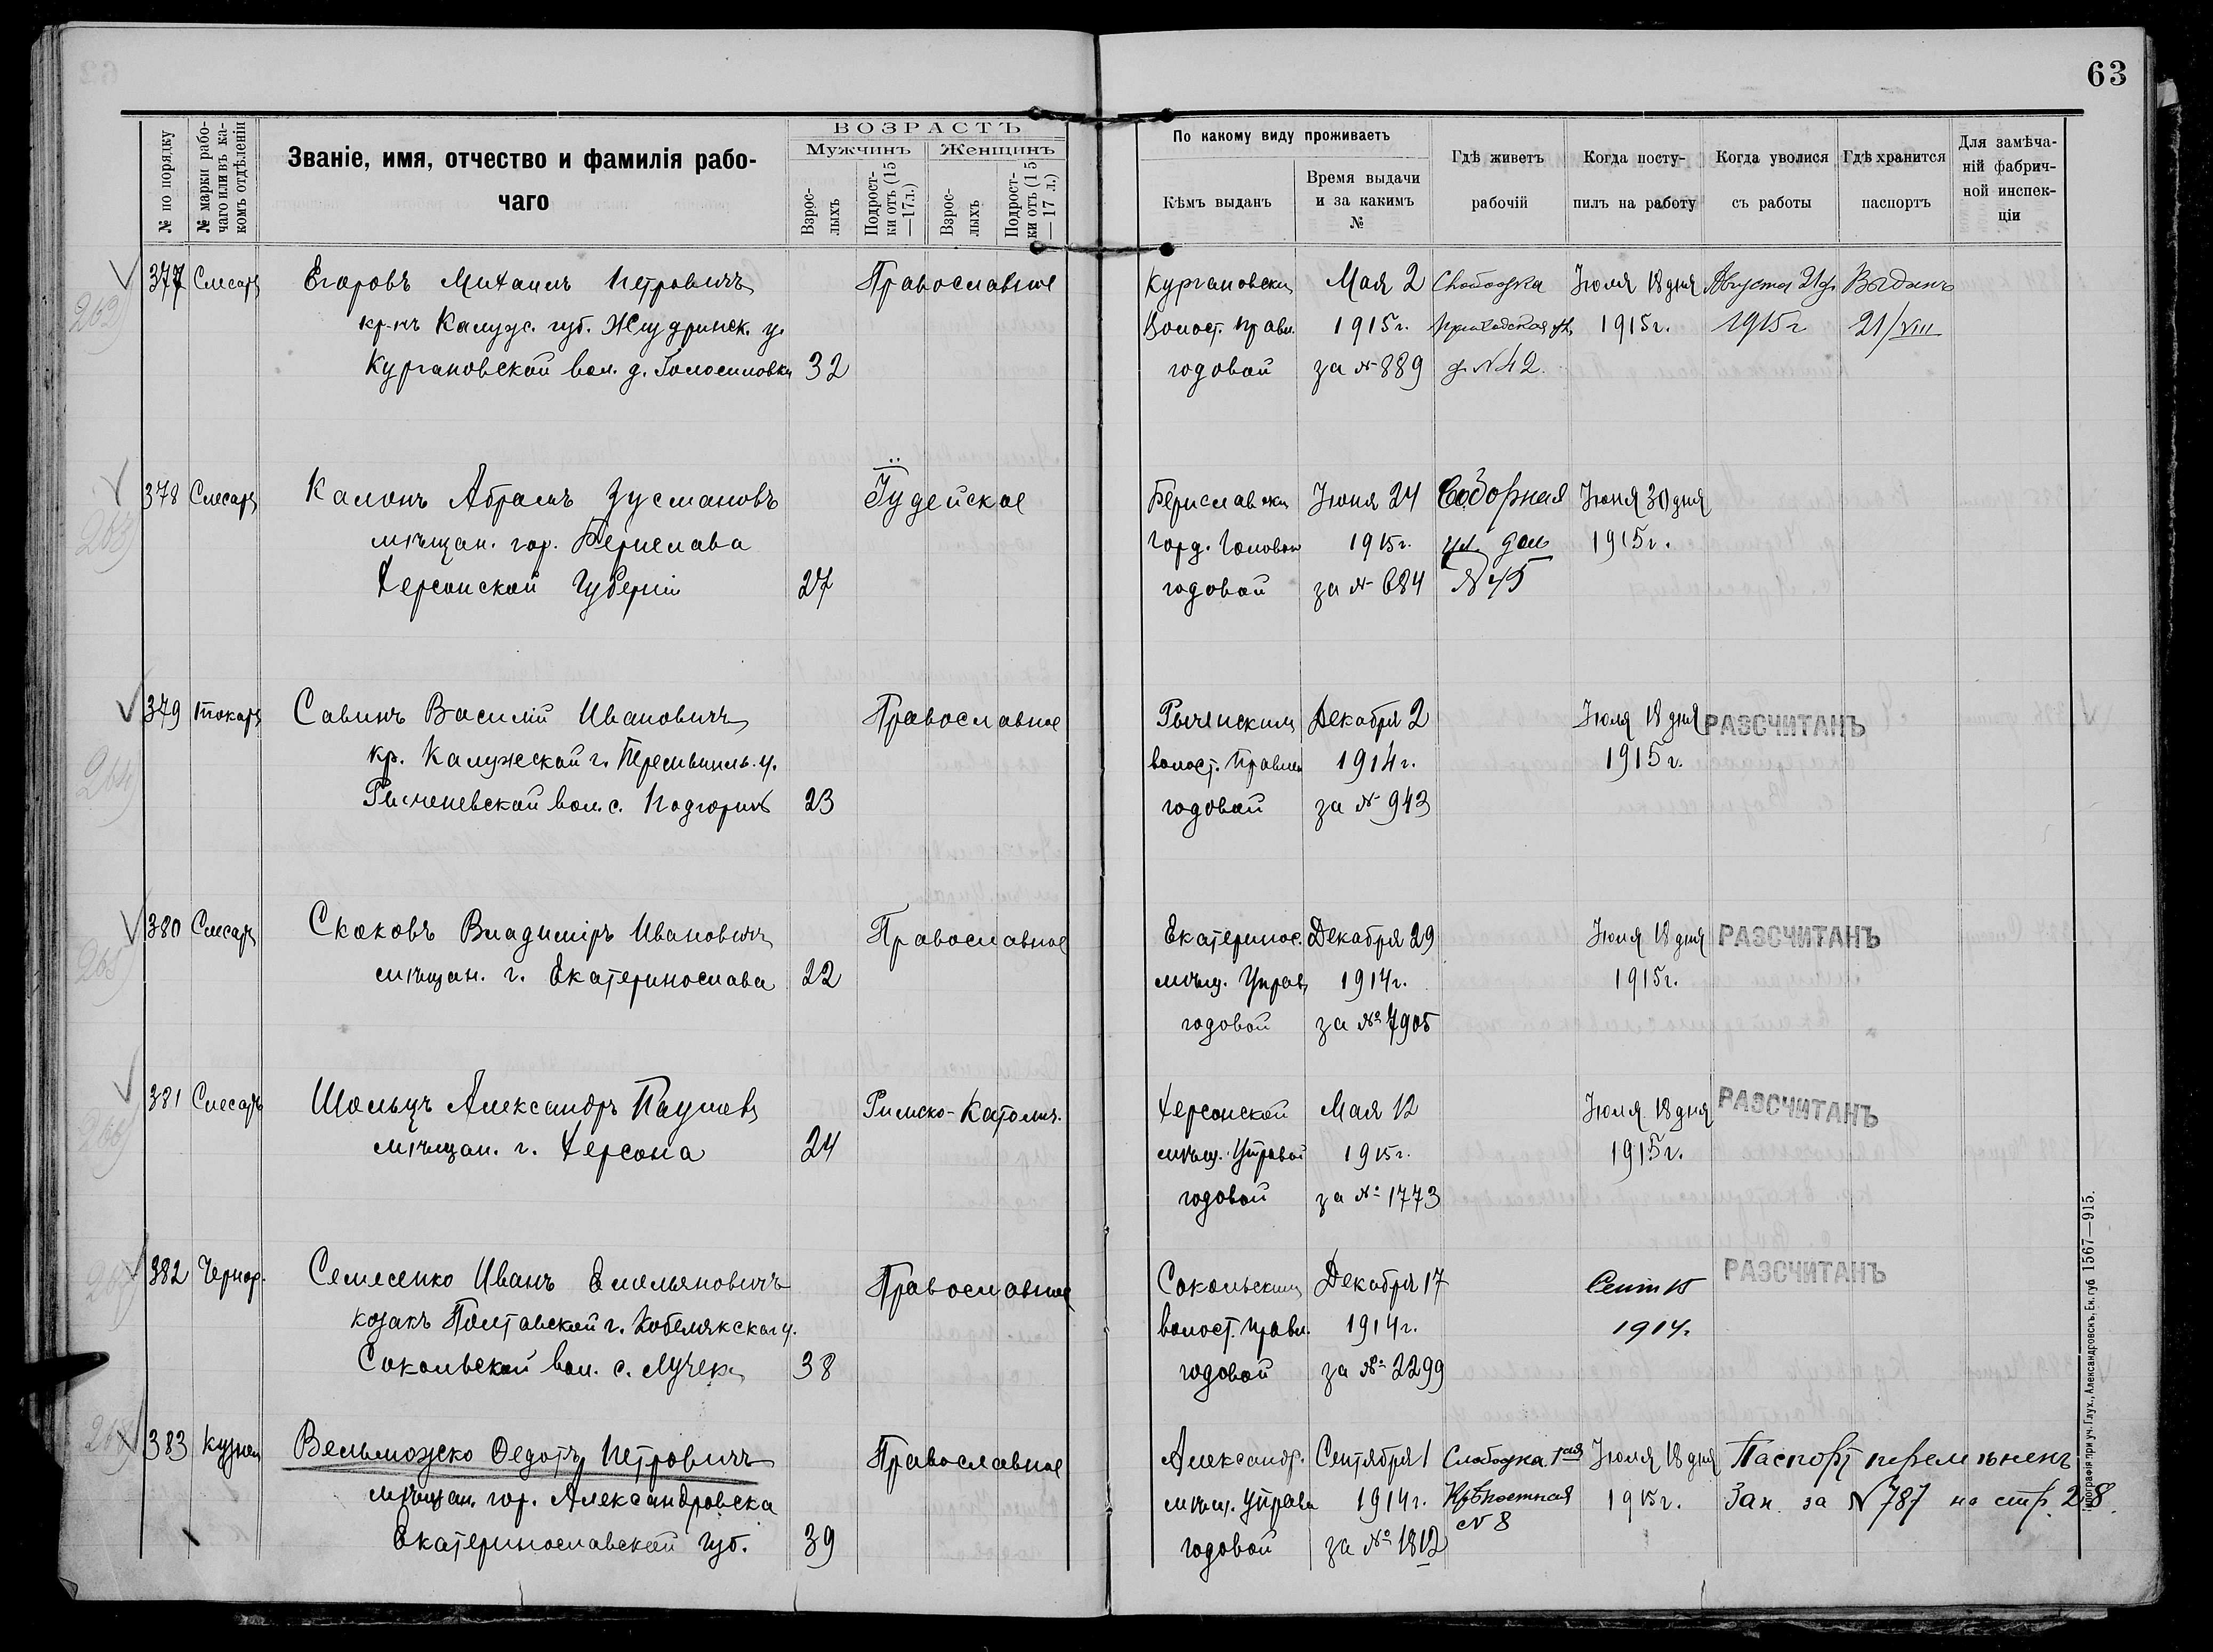 63
№ по порядку
№ марки рабо-
чаго или въ ка-
комъ отдѣленіи
Званіе, имя, отчество и фамилія рабо-
чаго
ВОЗРАСТЪ
Мужчинъ
Женщинъ
Взрос-
лыхъ
Подрост-
ки отъ (15
—17 л.)
Взрос-
лыхъ
Подрост-
ки отъ (15
— 17 л.)
По какому виду проживаетъ
Кѣмъ выданъ
Время выдачи
и за какимъ
№
Гдѣ живетъ
рабочій
Когда посту-
пилъ на работу
Когда уволися
съ работы
Гдѣ хранится
паспортъ
Для замѣча-
ній фабрич-
ной инспек-
ціи
377 Слесарь Егоровъ Михаилъ Петровичъ Православное Кургановски Мая 2 Слободка Іюля 18 дня Августа 21 д. Выданъ
кр-нъ Калужс. губ. Жиздринск. у. Волост. правл. 1915 г. 1915 г. 1915 г. 21/VIII
Кургановской вол. д. Голосиловки 32 годовой за № 889 д. № 42.
263
378 Слесарь Калонъ Абрамъ Зусмановъ Іудейское Бериславски Іюня 24 Соборная Іюня 30 дня
мѣщан. гор. Берислава Горд. Головой 1915 г. ул. дом 1915 г.
Херсонской Губерніи 27 годовой за № 684 № 45
379 Токарь Савинъ Василій Ивановичъ Православное Декабря 2 Іюля 18 дня РАЗСЧИТАНЪ
кр. Калужской г. волост. Правлен 1914 г. 1915 г.
вол. с. 23 годовой за № 943
264
380 Слесарь Скоковъ Владиміръ Ивановичъ Православное Екатеринос. Декабря 29 Іюля 18 дня РАЗСЧИТАНЪ
мѣщан. г. Екатеринослава 22 мѣщ. Управ 1914 г. 1915 г.
годовой за № 7905
265
381 Слесарь Шольцъ Александръ Паулевъ Римско-Католич. Херсонской Мая 12 Іюля 18 дня РАЗСЧИТАНЪ
мѣщан. г. Херсона 24 мѣщ. Управой 1915 г. 1915 г.
годовой за № 1773
266
382 Чернор. Семесенко Иванъ Емельяновичъ Православное Сокольским Декабря 17 Сент 15 РАЗСЧИТАНЪ
козакъ Полтавской г. Кобелякскаго у. волост. правл. 1914 г. 1914 г.
Сокольской вол. с. Лучек 38 годовой за № 2299
267
383 Кузнец Вельможско Федотъ Петровичъ Православное Александр. Сентября 1 Слободка 1ая Іюля 18 дня Паспорт перемѣненъ
мѣщан. гор. Александровска мѣщ. Управа 1914 г. Крѣпостная 1915 г. Зан. за № 787 на стр. 28.
Екатеринославской губ. 39 годовой за № 1812 № 8
268
Типографія при уч. Глух., Александровскъ, Ек. губ. 1567—915.